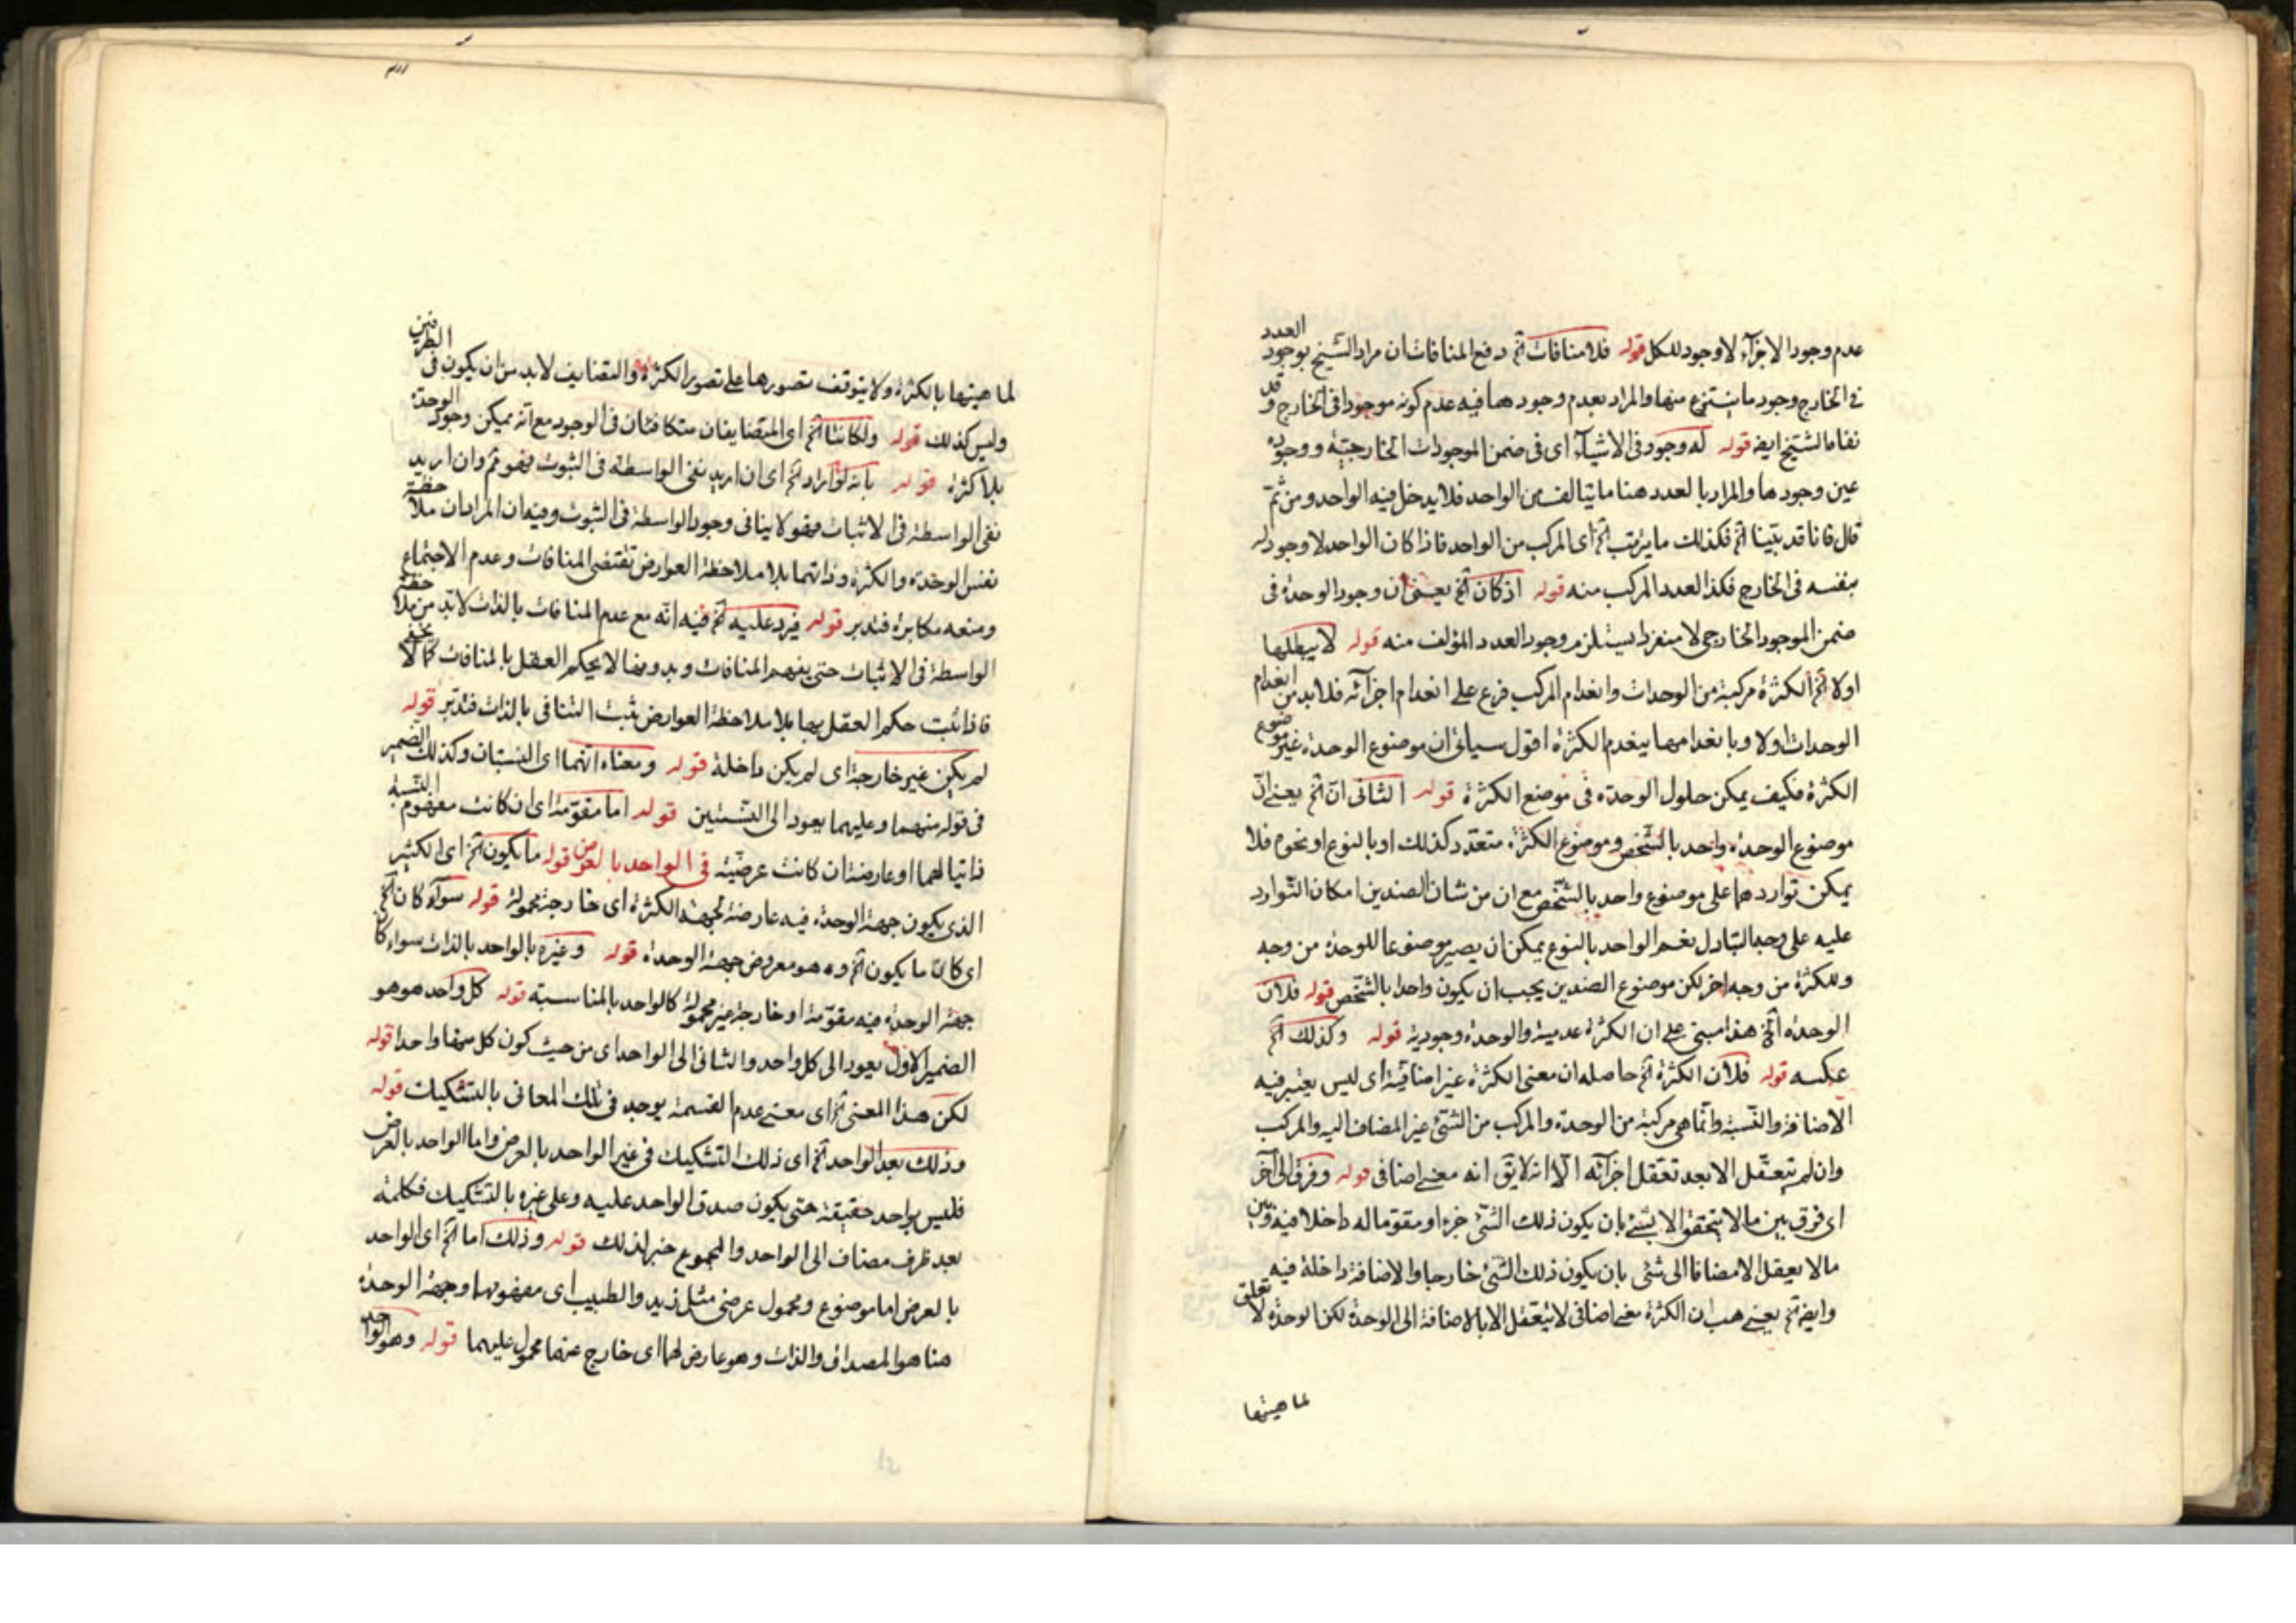 عدم وجود الاجزآء لاوجود للكل قوله فلا منافات آه دفع المنافات ان مراد الشيخ بوجود العدد
فى الخارج وجود ما ينتزع منها والمراد بعدم وجود هما فيه عدم كونه موجودا فى الخارج وقد
الشيخ ايضا قوله له وجود فى الاشيآء اى فى ضمن الموجودات الخارجية ووجوده
عين وجودها والمراد بالعدد هنا ما يتالف من الواحد فلا يدخل فيه الواحد ومن ثم
قال فانا قد بينا آه فكذلك ما يترتب آه اى المركب من الواحد فاذا كان الواحد لا وجود له
بنفسه فى الخارج فكذا العدد المركب منه قوله اذ كان آه يعنى ان وجود الوحدة فى
ضمن الموجود الخارجى لا منفردا يستلزم وجود العدد المؤلف منه قوله لا يبطلها
اولا آه الكثرة مركبة من الوحدات وانعدام المركب فرع على انعدام اجزآئه فلا بد من انعدام
الوحدات اولا وبانعدامها ينعدم الكثرة اقول سياتى ان موضوع الوحدة غير موضوع
الكثرة فكيف يمكن حلول الوحدة فى موضع الكثرة قوله الثانى ان آه يعنى ان
موضوع الوحدة واحد بالشخص وموضوع الكثرة متعدد كذلك او بالنوع او نحوه فلا
يمكن تواردهما على موضوع واحد بالشخص مع ان من شان الضدين امكان التوارد
عليه على وجه التبادل نعم الواحد بالنوع يمكن ان يصير موضوعا للوحدة من وجه
وللكثرة من وجه اخر لكن موضوع الضدين يجب ان يكون واحدا بالشخص قوله فلان
الوحدة آه هذا مبنى على ان الكثرة عدمية والوحدة وجودية قوله وكذلك آه
عكسه قوله فلان الكثرة آه حاصله ان معنى الكثرة غير اضافية اى ليس يعتبر فيه
الاضافة والنسبة وانما هى مركبة من الوحدة والمركب من الشئ غير المضاف اليه والمركب
وان لم يتعقل الا بعد تعقل اجزآئه الا انه لا يق انه معنى اضافى قوله وفرق الى آخر
اى فرق بين ما لا يتحقق الا بشئ بان يكون ذلك الشئ جزء او مقوما له داخلا فيه وبين
مالا يعقل الا مضافا الى شئ بان يكون ذلك الشئ خارجا والاضافة داخلة فيه
وايضا آه يعنى هب ان الكثرة معنى اضافى لا يتعقل الا بالاضافة الى الوحدة لكن الوحدة لا تعلق
لماهيتها
لماهيتها بالكثرة ولا يتوقف تصورها على تصور الكثرة والتضايف لابد من ان يكون فى الطرفين
وليس كذلك قوله ولكانتا آه اى المتضايفان متكافئان فى الوجود مع انه يمكن وجود الوحدة
بلا كثرة قوله بانه لو اراد آه اى ان اريد نفى الواسطة فى الثبوت فهو تم وان اريد
نفى الواسطة فى الاثبات فهو لا ينافى وجود الواسطة فى الثبوت وفيه ان المراد ان ملاحظة
نفس الوحدة والكثرة وذاتهما بلا ملاحظة العوارض تقتضى المنافات وعدم الاجتماع
ومنعه مكابرة فتدبر قوله فيرد عليه آه فيه انه مع عدم المنافات بالذات لابد من ملاحظة
الواسطة فى الاثبات حتى يفهم المنافات وبدونها لا يحكم العقل بالمنافات كما لا يخفى
فاذا ثبت حكم العقل بها بلا ملاحظة العوارض يثبت التنافى بالذات فتدبر قوله
لم يكن غير خارجة اى لم يكن داخلة قوله ومعناه انهما اى النسبتان وكذلك الضمير
فى قوله منهما وعليهما يعود الى النسبتين قوله اما مقومة اى ان كانت مفهوم النسبة
ذاتيا لهما او عارضة ان كانت عرضية فى الواحد بالعرض قوله ما يكون آه اى الكثير
الذى يكون جهة الوحدة فيه عارضة لجهة الكثرة اى خارجة محمولة قوله سوآء كان آه
اى كان ما يكون آه وه هو معروض جهة الوحدة قوله وغيره بالواحد بالذات سواء كان
جهة الوحدة فيه مقومة او خارجة غير محمولة كالواحد بالمناسبة قوله كل واحد هو هو
الضمير الاول يعود الى كل واحد والثانى الى الواحد اى من حيث كون كل منها واحدا قوله
لكن هذا المعنى آه اى معنى عدم القسمة يوجد فى تلك المعانى بالتشكيك قوله
وذلك بعد الواحد آه اى ذلك التشكيك فى غير الواحد بالعرض واما الواحد بالعرض
فليس بواحد حقيقة حتى يكون صدق الواحد عليه وعلى غيره بالتشكيك فكلمة
بعد ظرف مضاف الى الواحد والمجموع خبر لذلك قوله وذلك اما آه اى الواحد
بالعرض اما موضوع ومحمول عرضى مثل زيد والطبيب اى مفهومها وجهة الوحدة
هنا هو المصداق والذات وهو عارض لهما اى خارج عنها محمول عليهما قوله وهو الواحد